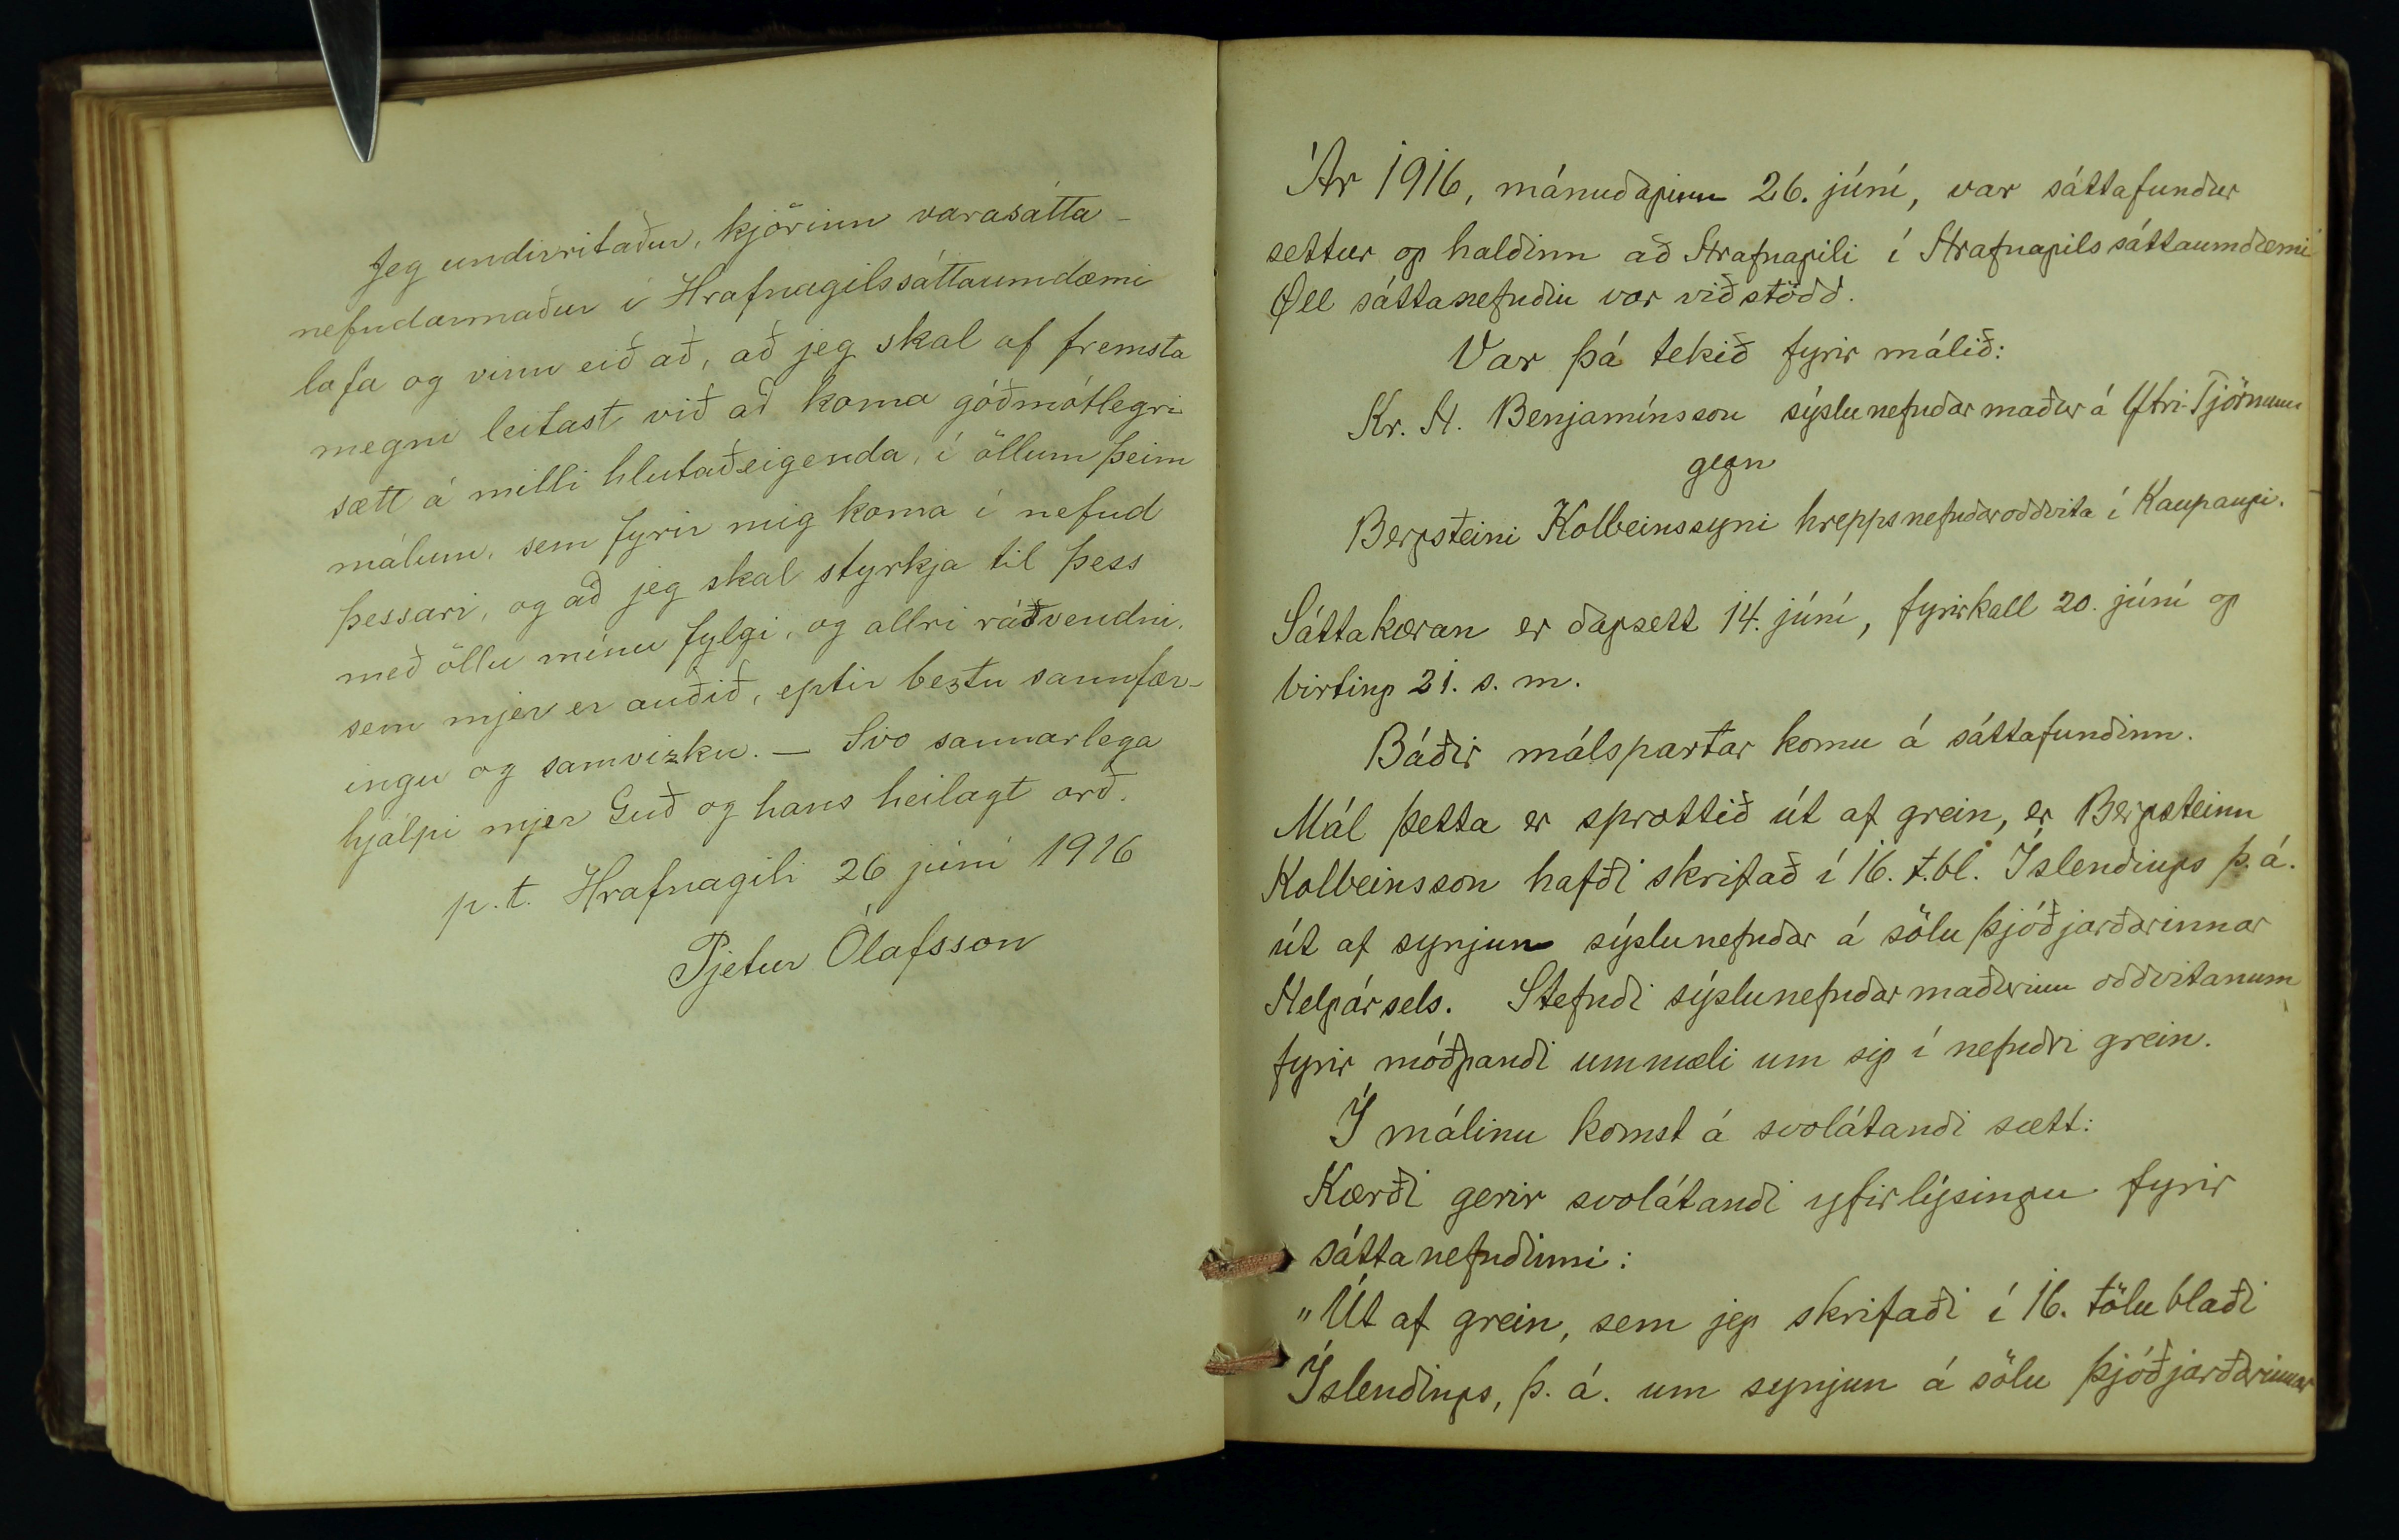 Jeg undirritaður, kjörinn varasátta-
nefndarmaður í Hrafnagilssáttaumdæmi
lofa og vinn eið að, að jeg skal af fremsta
megni leitast við að koma góðmótlegri
sætt á milli hlutaðeigenda, í öllum þeim
málum, sem fyrir mig koma í nefnd
þessari, og að jeg skal styrkja til þess
með öllu mínu fylgi, og allri ráðvendni,
sem mjer er auðið, eptir beztu sannfær-
ingu og samvizku. — Svo sannarlega
hjálpi mjer Guð og hans heilagt orð.
p.t. Hrafnagili 26 júní 1916
Pjetur Ólafsson
Ár 1916, mánudaginn 26. júní, var sáttafundur
settur og haldinn að Hrafnagili í Hrafnagilssáttaumdæmi
Öll sáttanefndin var viðstödd.
Var þá tekið fyrir málið:
Kr. H. Benjamínsson sýslunefndarmaður á Ytri-Tjörnum
gegn
Bergsteini Kolbeinssyni hreppsnefndaroddvita í Kaupangi.
Sáttakæran er dagsett 14. júní, fyrirkall 20. júní og
birting 21. s. m.
Báðir málspartar komu á sáttafundinn.
Mál þetta er sprottið út af grein, er Bergsteinn
Kolbeinsson hafði skrifað í 16. t.bl. Íslendings þ.á.
út af synjun sýslunefndar á sölu þjóðjarðarinnar
Helgársels. Stefndi sýslunefndarmaðurinn oddvitanum
fyrir móðgandi ummæli um sig í nefndri grein.
Í málinu komst á svolátandi sætt:
Kærði gerir svolátandi yfirlýsingu fyrir
sáttanefndinni:
"Út af grein, sem jeg skrifaði í 16. tölublaði
Íslendings, þ. á. um synjun á sölu þjóðjarðarinnar